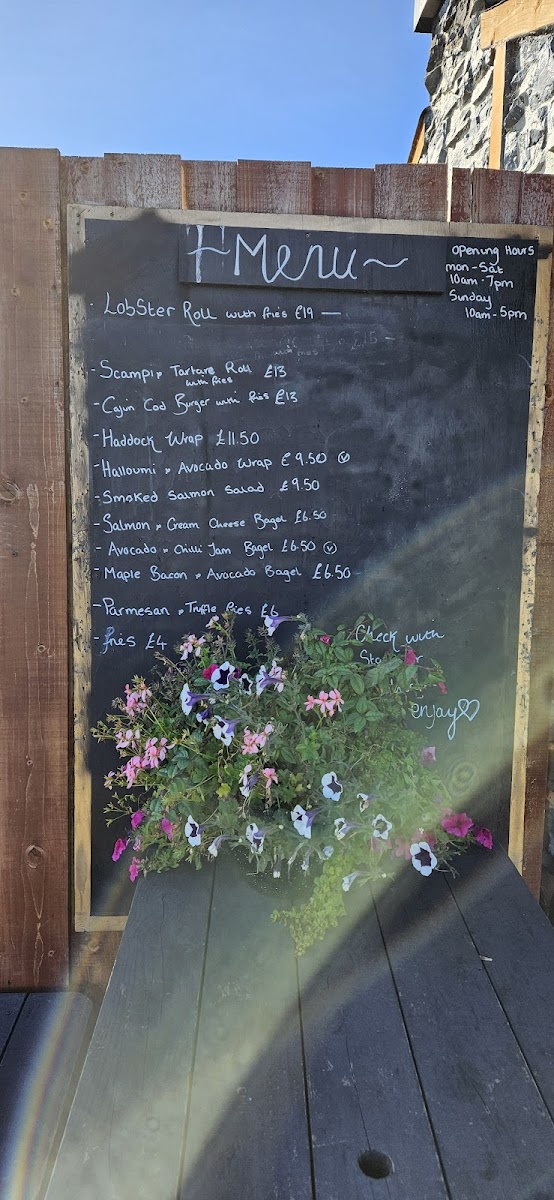 Menu ~
Opening Hours
mon - Sat
10am - 7pm
Sunday
10am - 5pm
- Lobster Roll with fries £19 —
£15 -
- Scampi & Tartare Roll £13
with fries
- Cajun Cod Burger with fries £13
- Haddock Wrap £11.50
- Halloumi & Avocado Wrap £9.50 Ⓥ
- Smoked Salmon Salad £9.50
- Salmon & Cream Cheese Bagel £6.50
- Avocado & Chilli Jam Bagel £6.50 Ⓥ
- Maple Bacon & Avocado Bagel £6.50 -
- Parmesan & Truffle fries £6
- fries £4
Check with
enjoy ♡